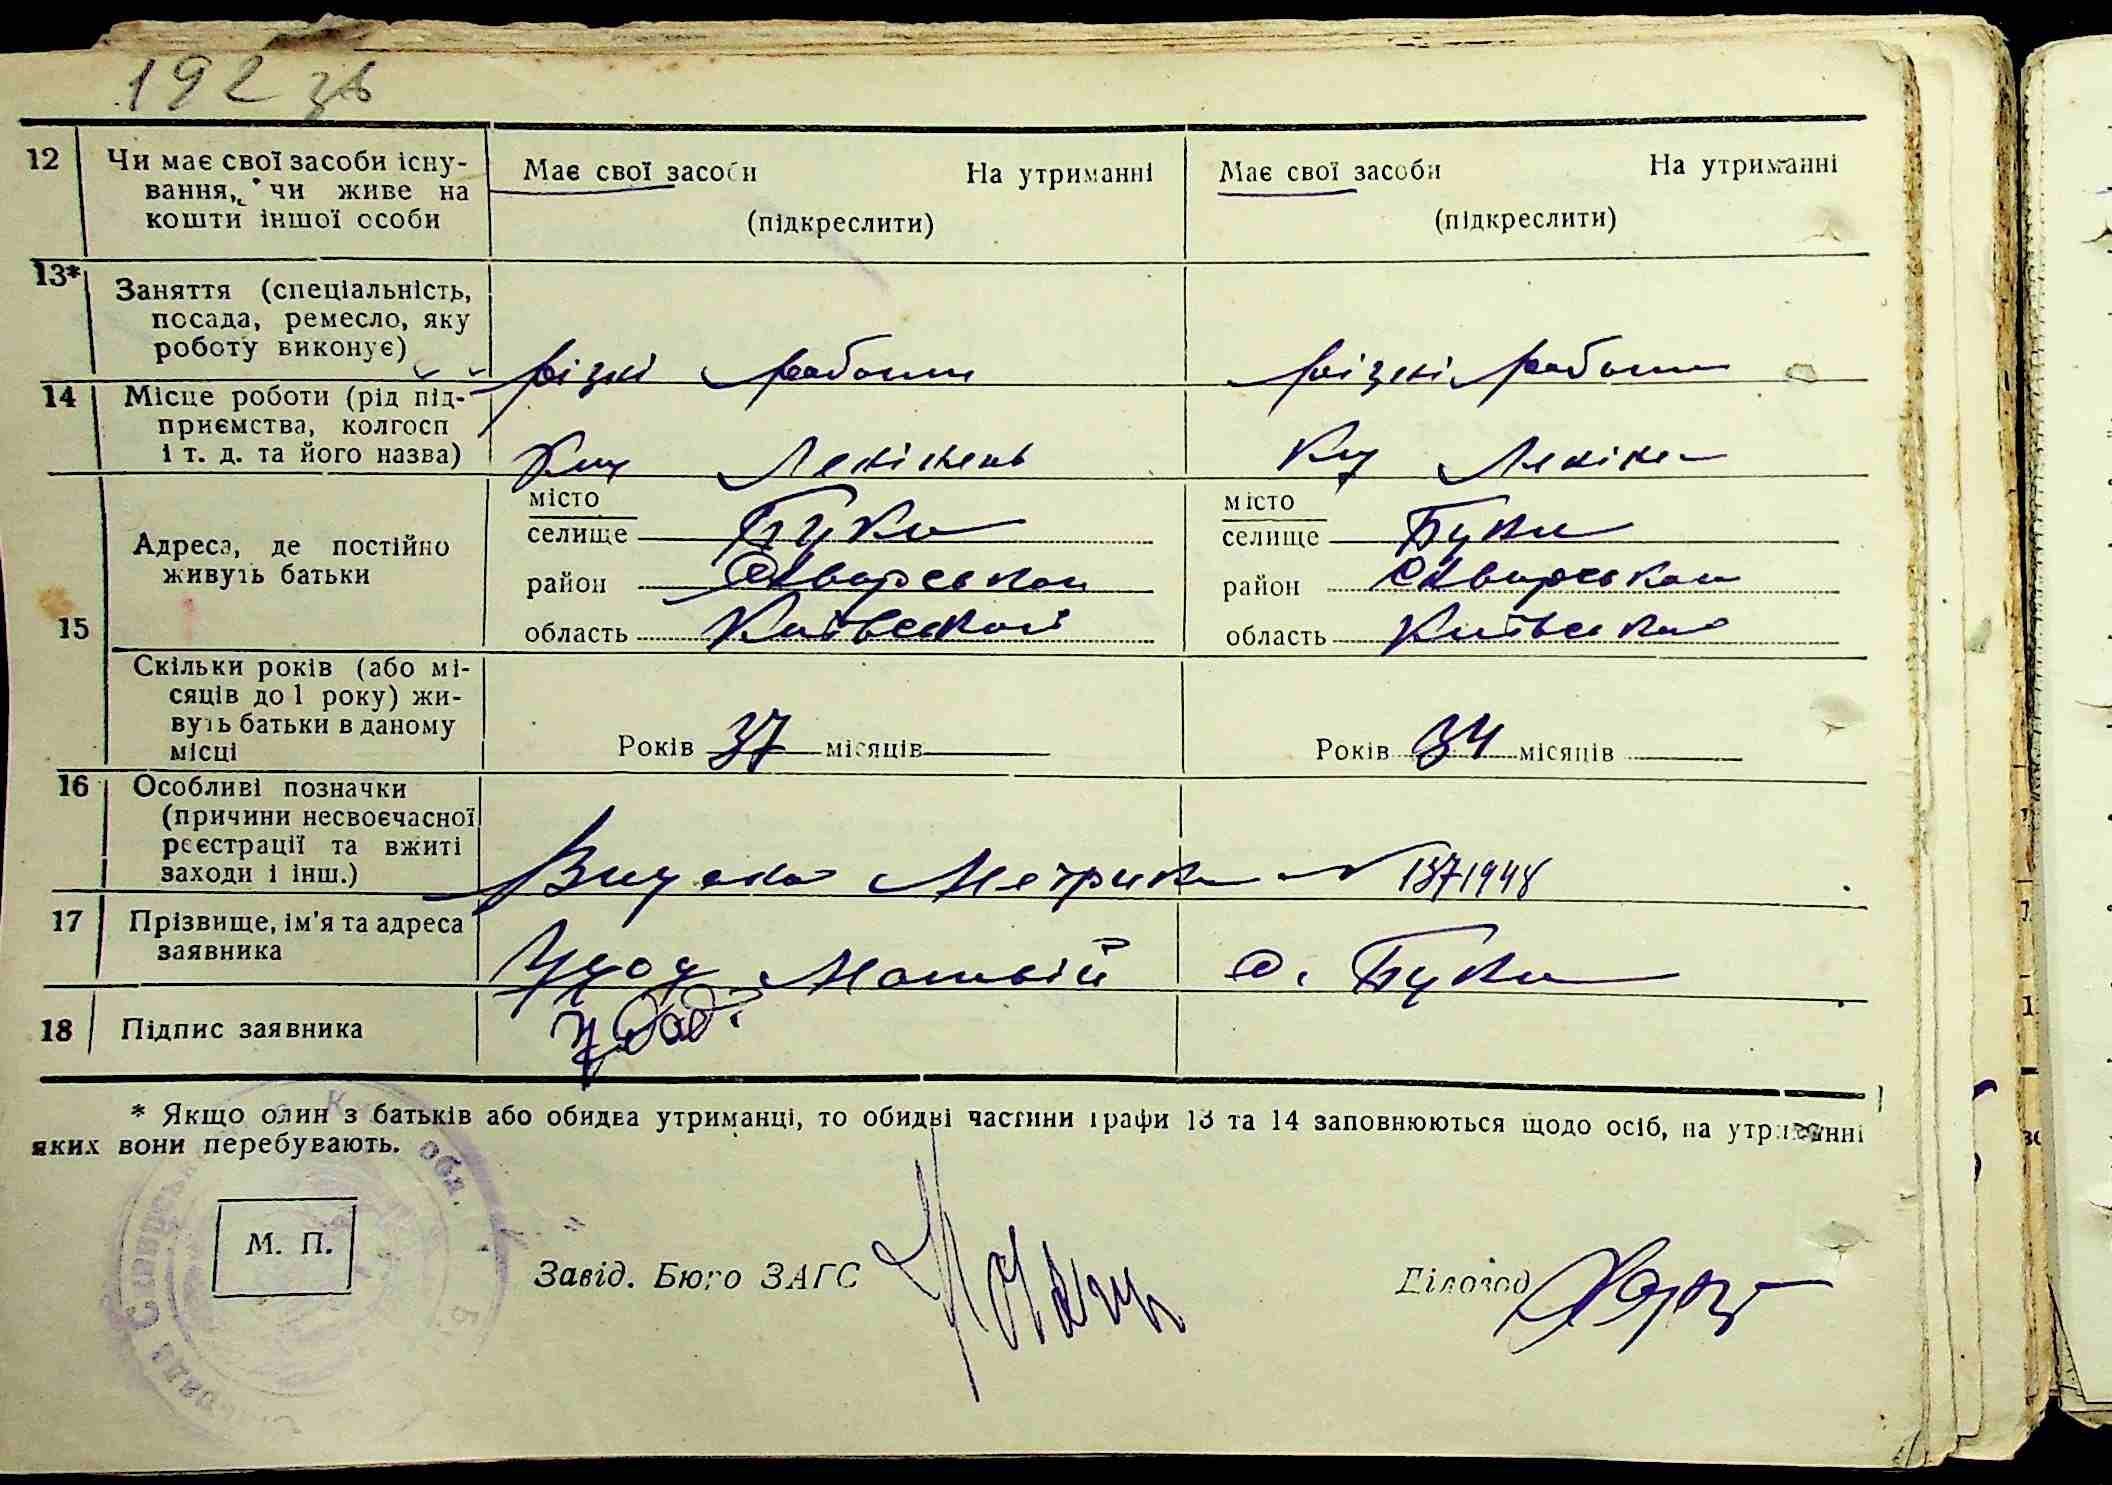 192 зв
12 Чи має свої засоби існу-
вання, чи живе на
кошти іншої особи
Має свої засоби На утриманні
(підкреслити)
Має свої засоби На утриманні
(підкреслити)
13* Заняття (спеціальність,
посада, ремесло, яку
роботу виконує)
різні работи
різні работи
14 Місце роботи (рід під-
приємства, колгосп
і т. д. та його назва)
15 Адреса, де постійно
живуть батьки
місто
селище Буки
район Сквирський
область Київської
місто
селище Буки
район Сквирської
область Київської
Скільки років (або мі-
сяців до 1 року) жи-
вуть батьки в даному
місці
Років 37 місяців
Років 34 місяців
16 Особливі позначки
(причини несвоєчасної
реєстрації та вжиті
заходи і інш.)
Метрика № 137 1948
17 Прізвище, ім'я та адреса
заявника
Матвій с. Буки
18 Підпис заявника
* Якщо один з батьків або обидва утриманці, то обидві частини графи 13 та 14 заповнюються щодо осіб, на утриманні
яких вони перебувають.
М. П.
Завід. Бюро ЗАГС
Діловод